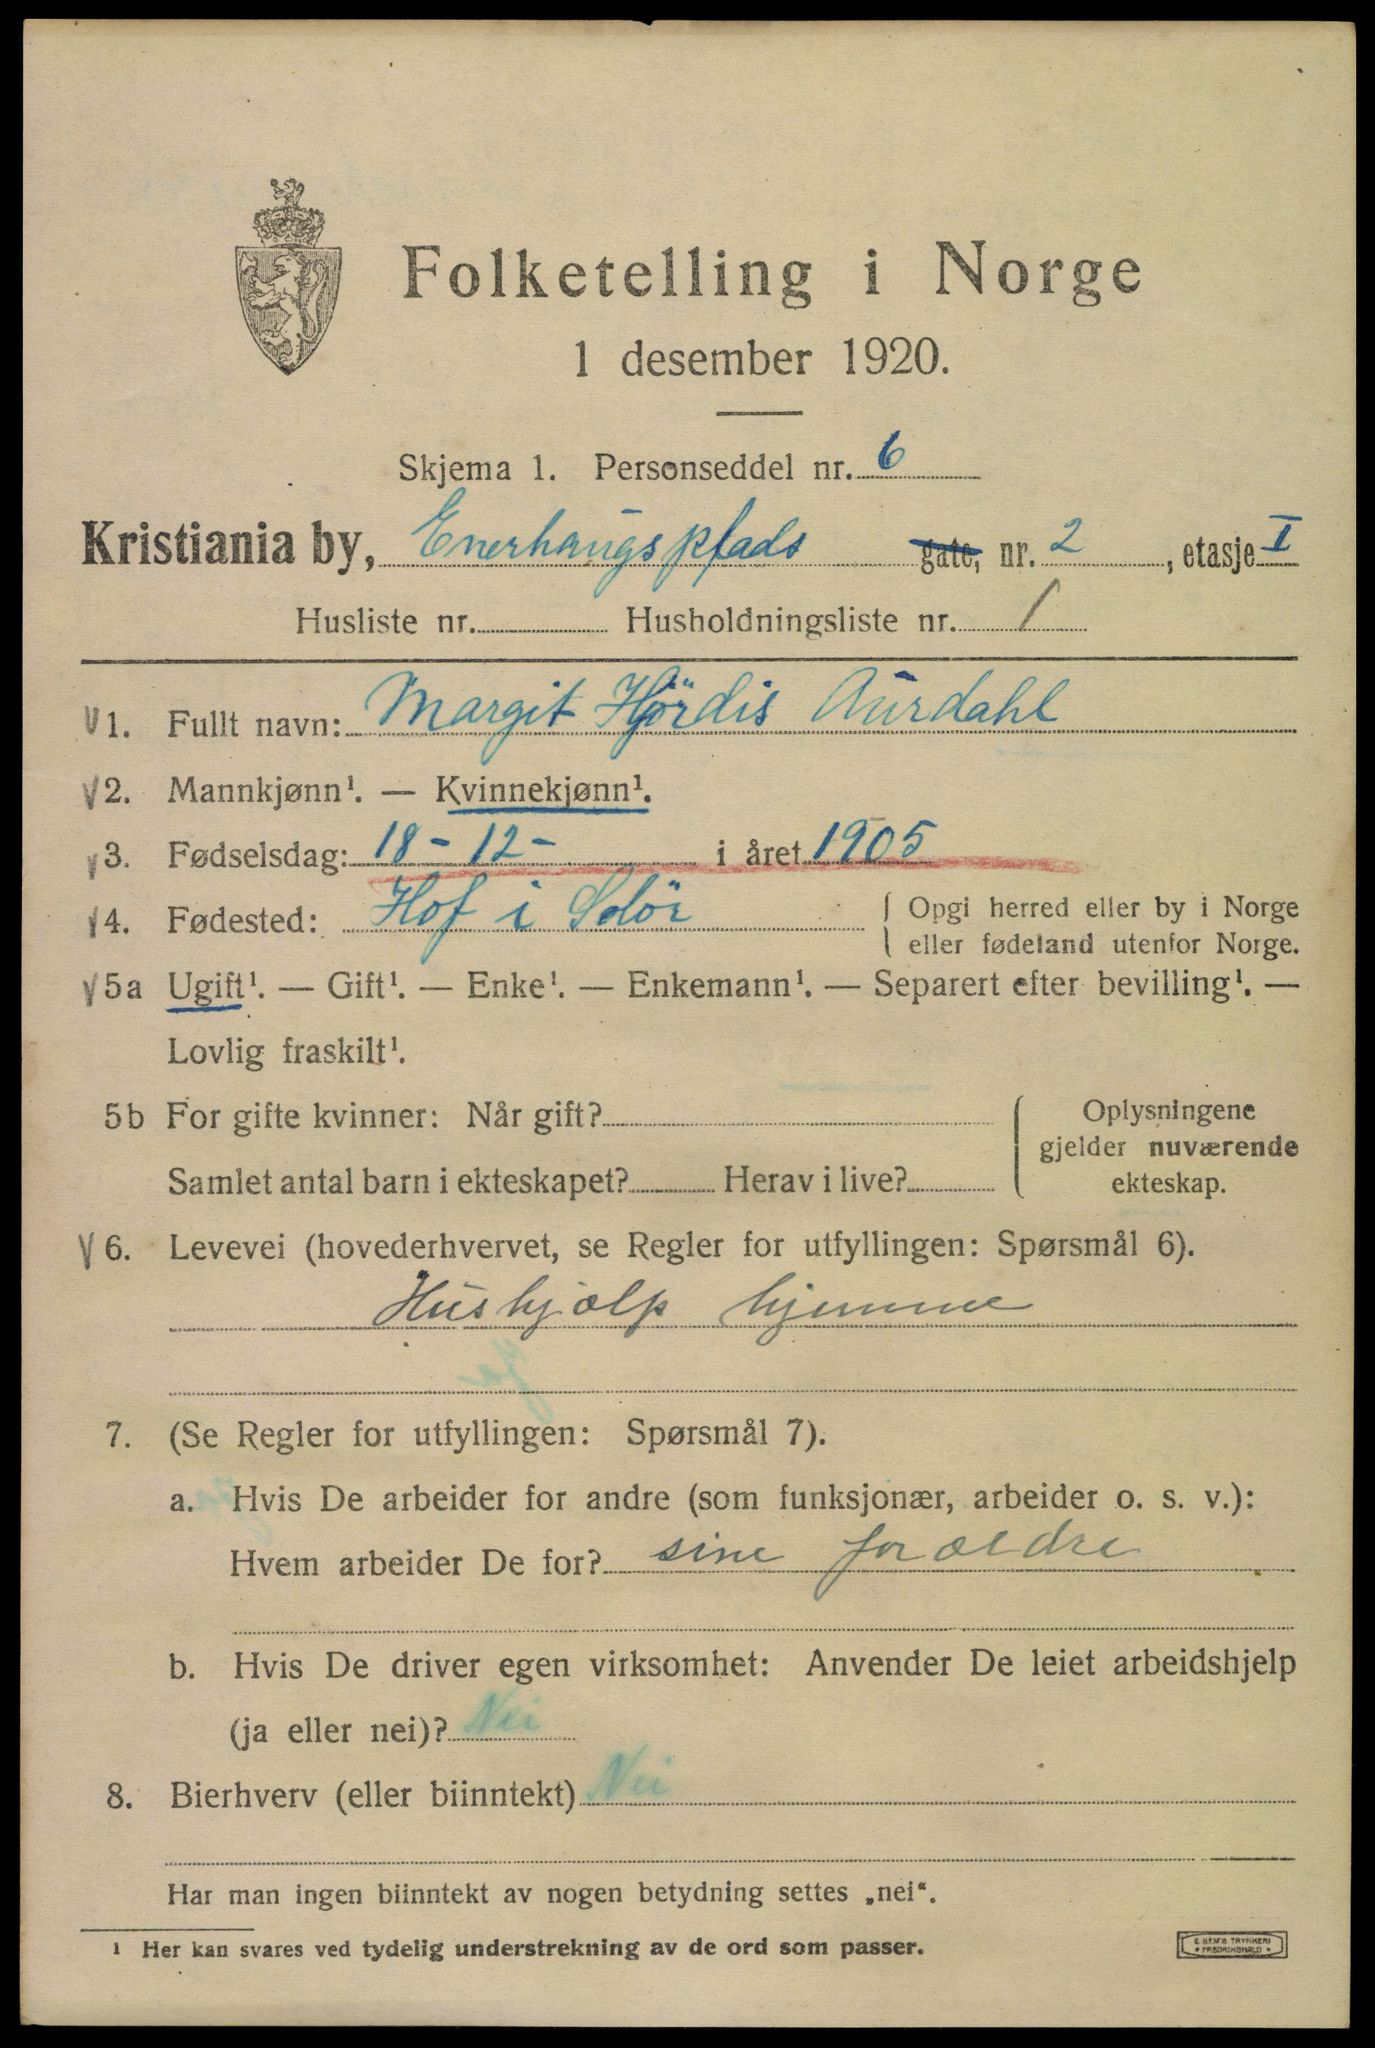 Folketelling i Norge
1 desember 1920.
Skjema 1. Personseddel nr. 6
Kristiania by, Enerhaugsplads gate, nr. 2, etasje I
Husliste nr. Husholdningsliste nr. 1
1. Fullt navn: Margit Hjördis Aurdahl
2. Mannkjønn¹. — Kvinnekjønn¹.
3. Fødselsdag: 18 - 12 - i året 1905
4. Fødested: Hof i Solör { Opgi herred eller by i Norge
eller fødeland utenfor Norge.
5a Ugift¹. — Gift¹. — Enke¹. — Enkemann¹. — Separert efter bevilling¹. —
Lovlig fraskilt¹.
5b For gifte kvinner: Når gift? { Oplysningene
gjelder nuværende
Samlet antal barn i ekteskapet? Herav i live? ekteskap.
6. Levevei (hovederhvervet, se Regler for utfyllingen: Spørsmål 6).
Hushjælp hjemme
7. (Se Regler for utfyllingen: Spørsmål 7).
a. Hvis De arbeider for andre (som funksjonær, arbeider o. s. v.):
Hvem arbeider De for? sine forældre
b. Hvis De driver egen virksomhet: Anvender De leiet arbeidshjelp
(ja eller nei)? Nei
8. Bierhverv (eller biinntekt) Nei
Har man ingen biinntekt av nogen betydning settes „nei“.
¹ Her kan svares ved tydelig understrekning av de ord som passer.
E SEM'S TRYKKERI
• FREDRIKSHALD •